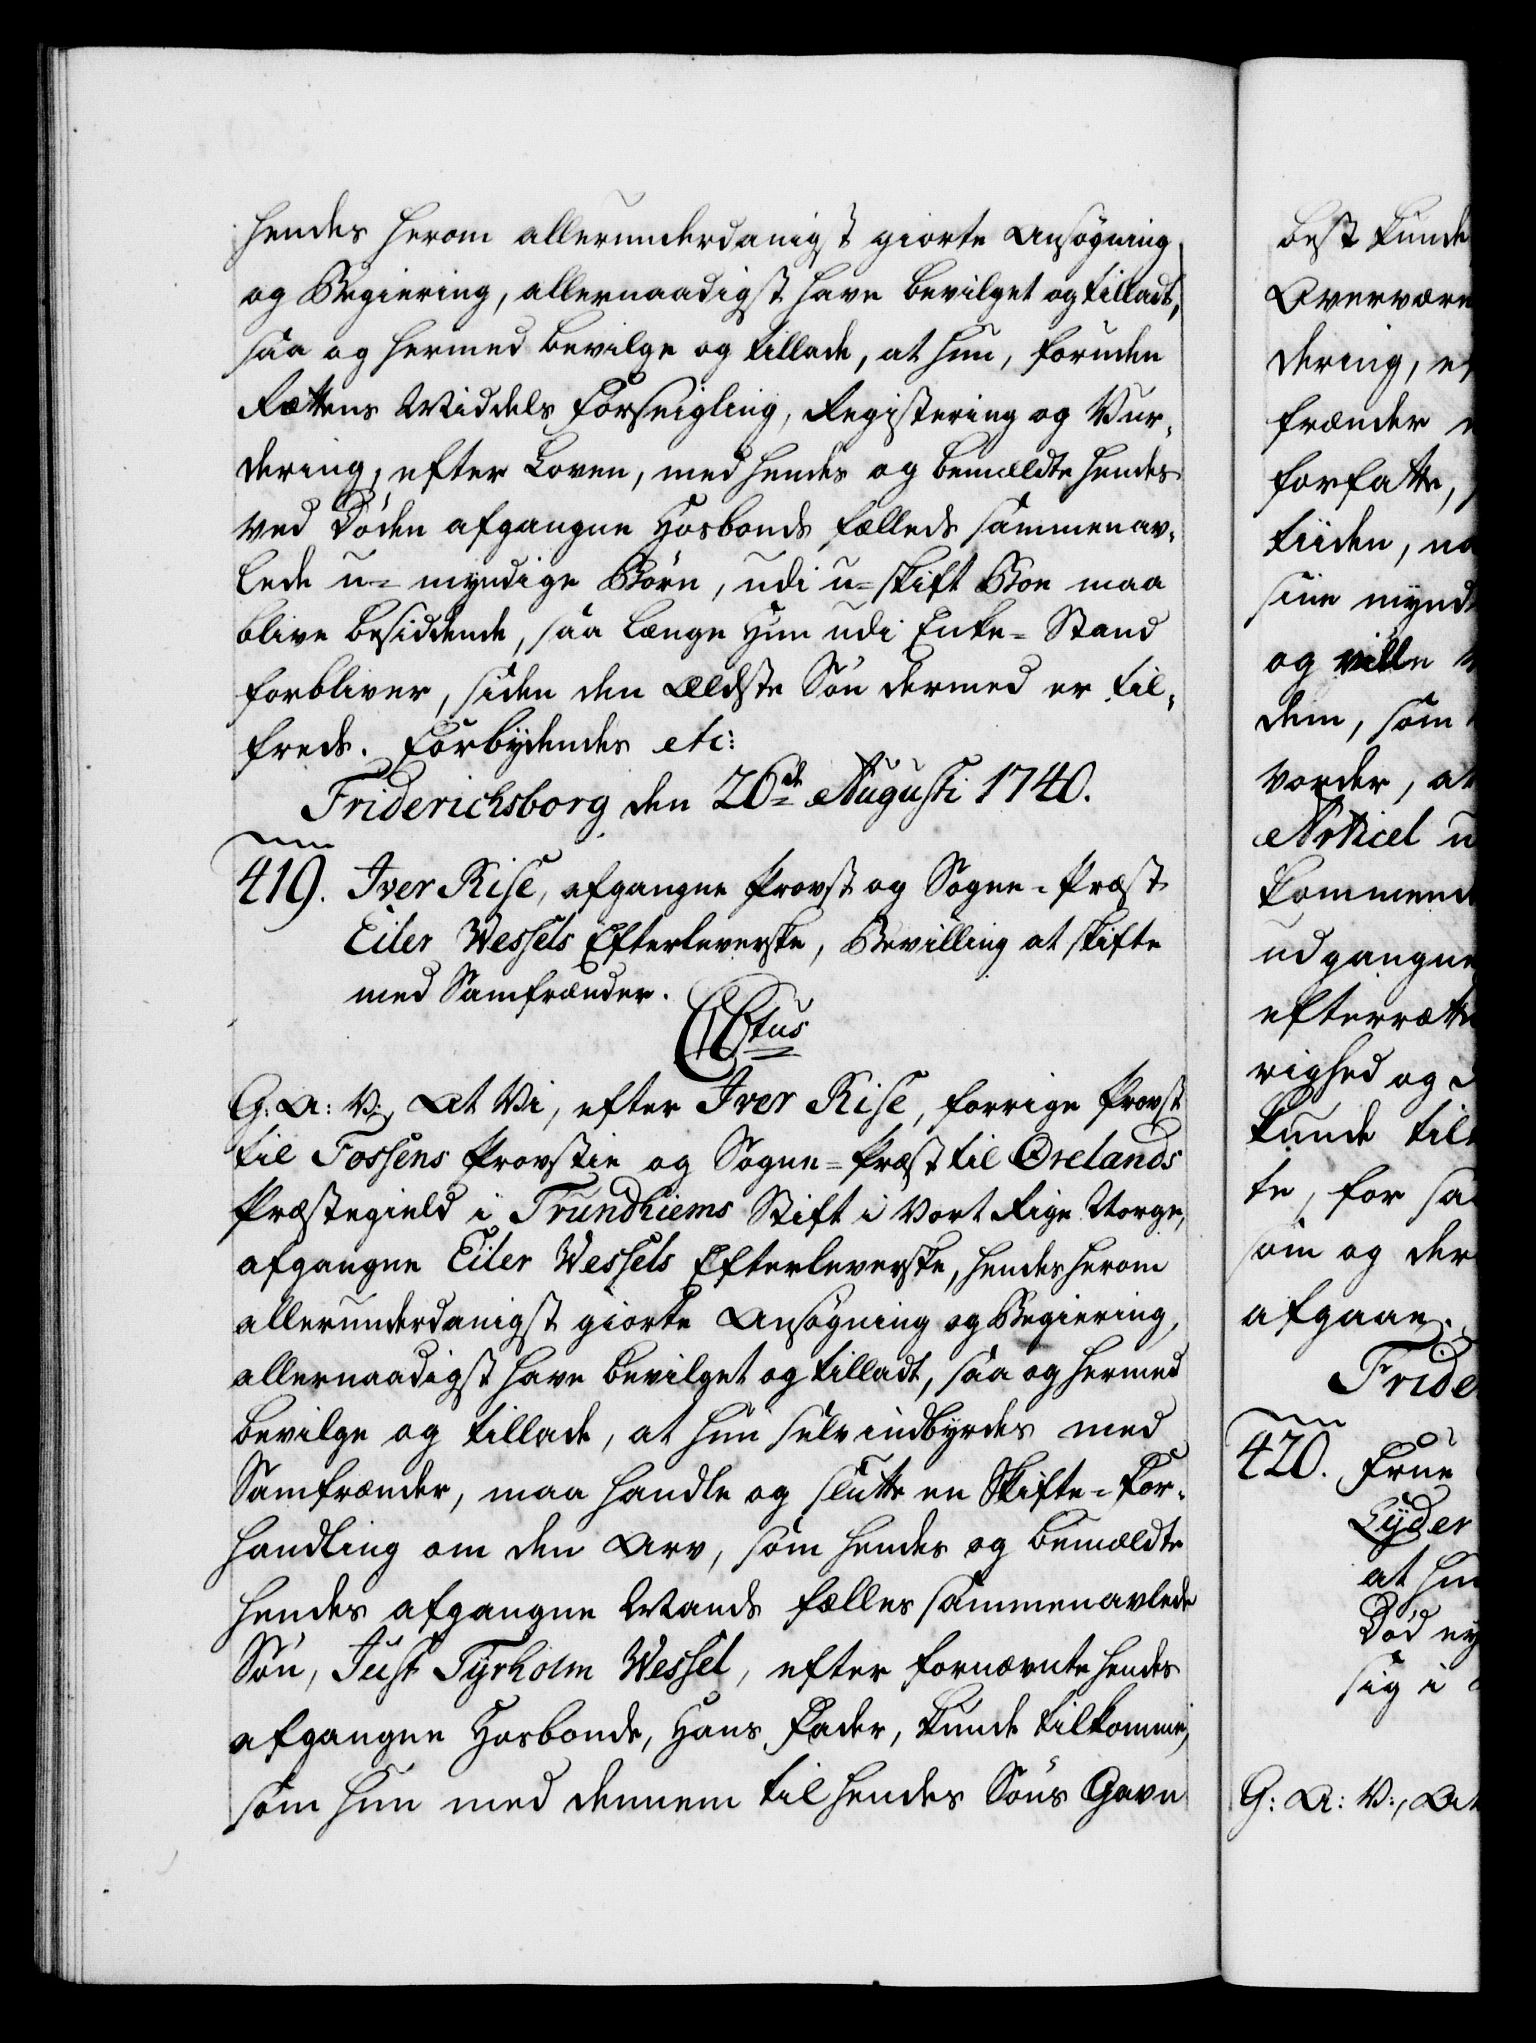 hendes herom allerunderdanigst giorte Ansøgning
og Begiering, allernaadigst have bevilget og tilladt,
saa og hermed bevilge og tillade, at hun, foruden
Rettens Middels Forseigling, Registering og Vur-
dering, efter Loven, med hendes og bemældte hendes
ved Døden afgangne Hosbonds fælleds sammenav-
lede u=myndige Børn, udi u=skift Boe maa
blive besiddende, saa længe Hun udi Enke=Stand
forbliver, siden den Ældste Søn dermed er til-
freds. Forbydendes etc:
Friderichsborg den 26de Augusti 1740.
419. Iver Rise, afgangne Provst og Sogne=Præst
Eiler Wessels Efterleverske, Bevilling at skifte
med Samfrænder.
C6tus
G: A: V:, At Vi, efter Iver Rise, forrige Provst
til Fossens Provstie og Sogne=Præst til Ørelands
Præstegield i Trundhiems Stift i Vort Rige Norge,
afgangne Eiler Wessels Efterleverske, hendes herom
allerunderdanigst giorte Ansøgning og Begiering,
allernaadigst have bevilget og tilladt, saa og hermed
bevilge og tillade, at hun selv indbyrdes med
Samfrænder, maa handle og slutte en Skifte=For-
handling om den Arv, som hendes og bemældte
hendes afgangne Mands fælles sammenavlede
Søn, Just Tyrholm Wessel, efter fornævnte hendes
afgangne Hosbonde, Hans Fader, kunde tilkomme,
som hun med dennem til hendes Søns Gavn
best kunde
Overvære
dering, e
frænder
forfatte,
tiiden, na
sine mynd
og ville
dem, som
vorder, at
Articel u
kommend
udgangne
efterrette
righed og
kunde til
te, for sa
som og der
afgaae.
Fride
420. Frue
Lyder
at hu
Død ny
sig i
G: A: V:, At